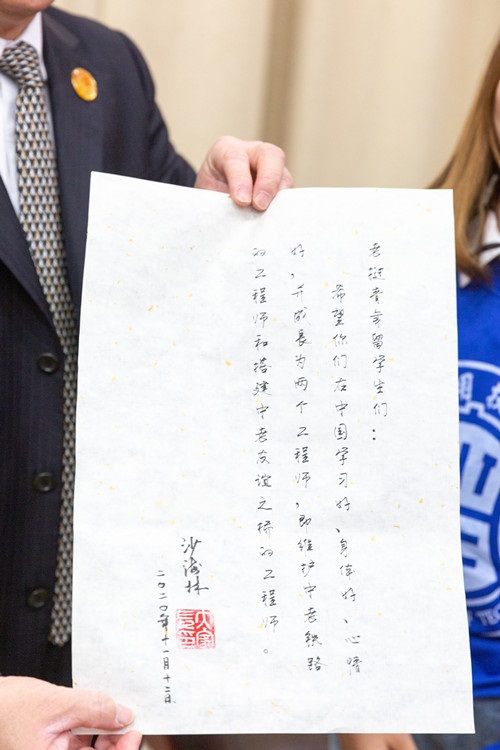 老挝青年留学生们：
希望你们在中国学习好、身体好、心情
好，并成長为两个工程师，即维护中老铁路
的工程师和搭建中老友谊之桥的工程师。
沙海林
二〇二〇年十一月十二日